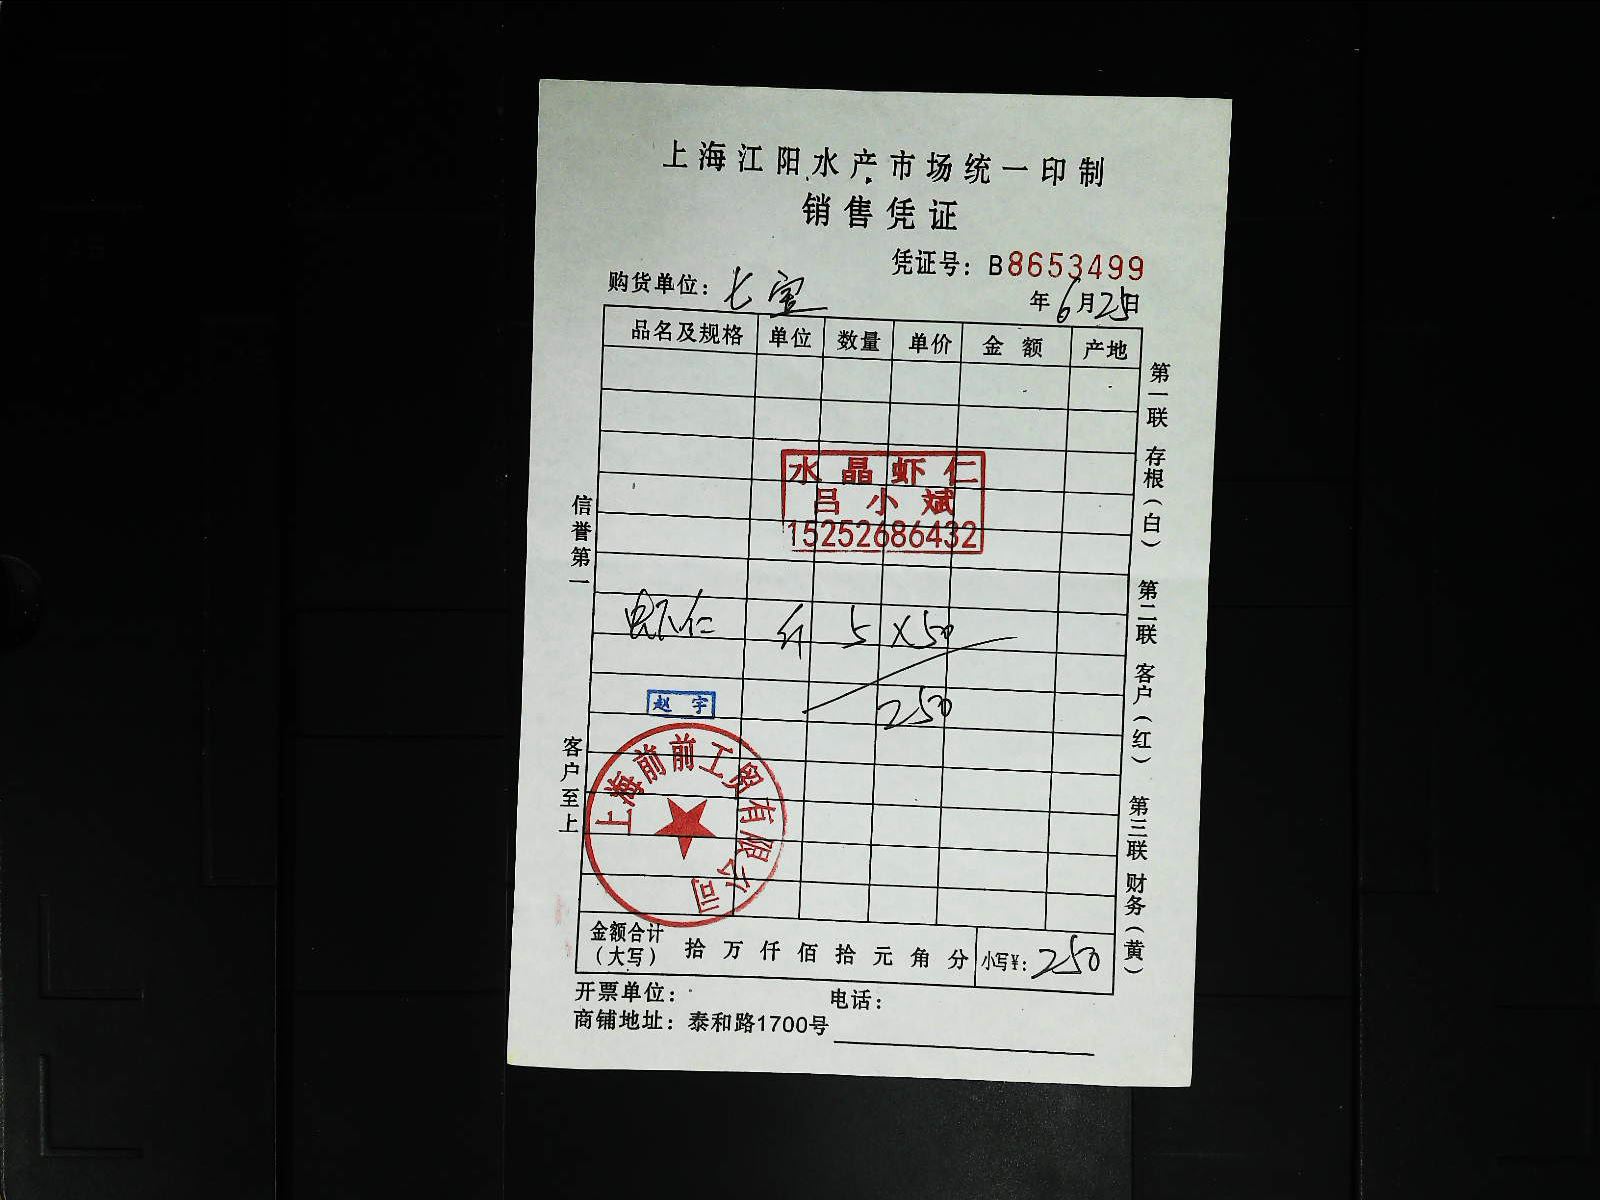 上海江阳水产市场统一印制
销售凭证
凭证号：B8653499
购货单位：七宝
年6月25日
品名及规格 单位 数量 单价 金额 产地
水晶虾仁
吕小斌
15252686432
虾仁 斤 5 ×50
250
赵宇
上海前前工贸有限公司
金额合计（大写） 拾万仟佰拾元角分 小写¥：250
开票单位： 电话：
商铺地址：泰和路1700号
信誉第一 客户至上
第一联 存根（白） 第二联 客户（红） 第三联 财务（黄）